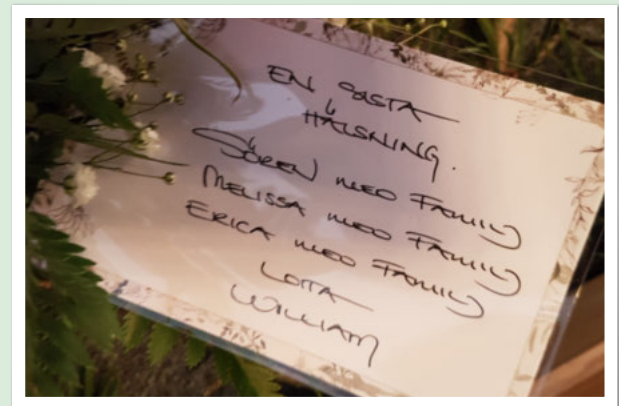 EN SISTA
HÄLSNING.
SÖREN MED FAMILY
MELISSA MED FAMILY
ERICA MED FAMILY
LOTTA
WILLIAM